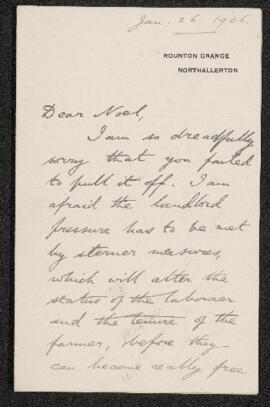 Jan. 26. 1906.
ROUNTON GRANGE
NORTHALLERTON
Dear Noel,
I am so dreadfully
sorry that you failed
to pull it off. I am
afraid the landlord
pressure has to be met
by sterner measures,
which will alter the
status of the labourer
and the tenure of the
farmer, before they
can become really free